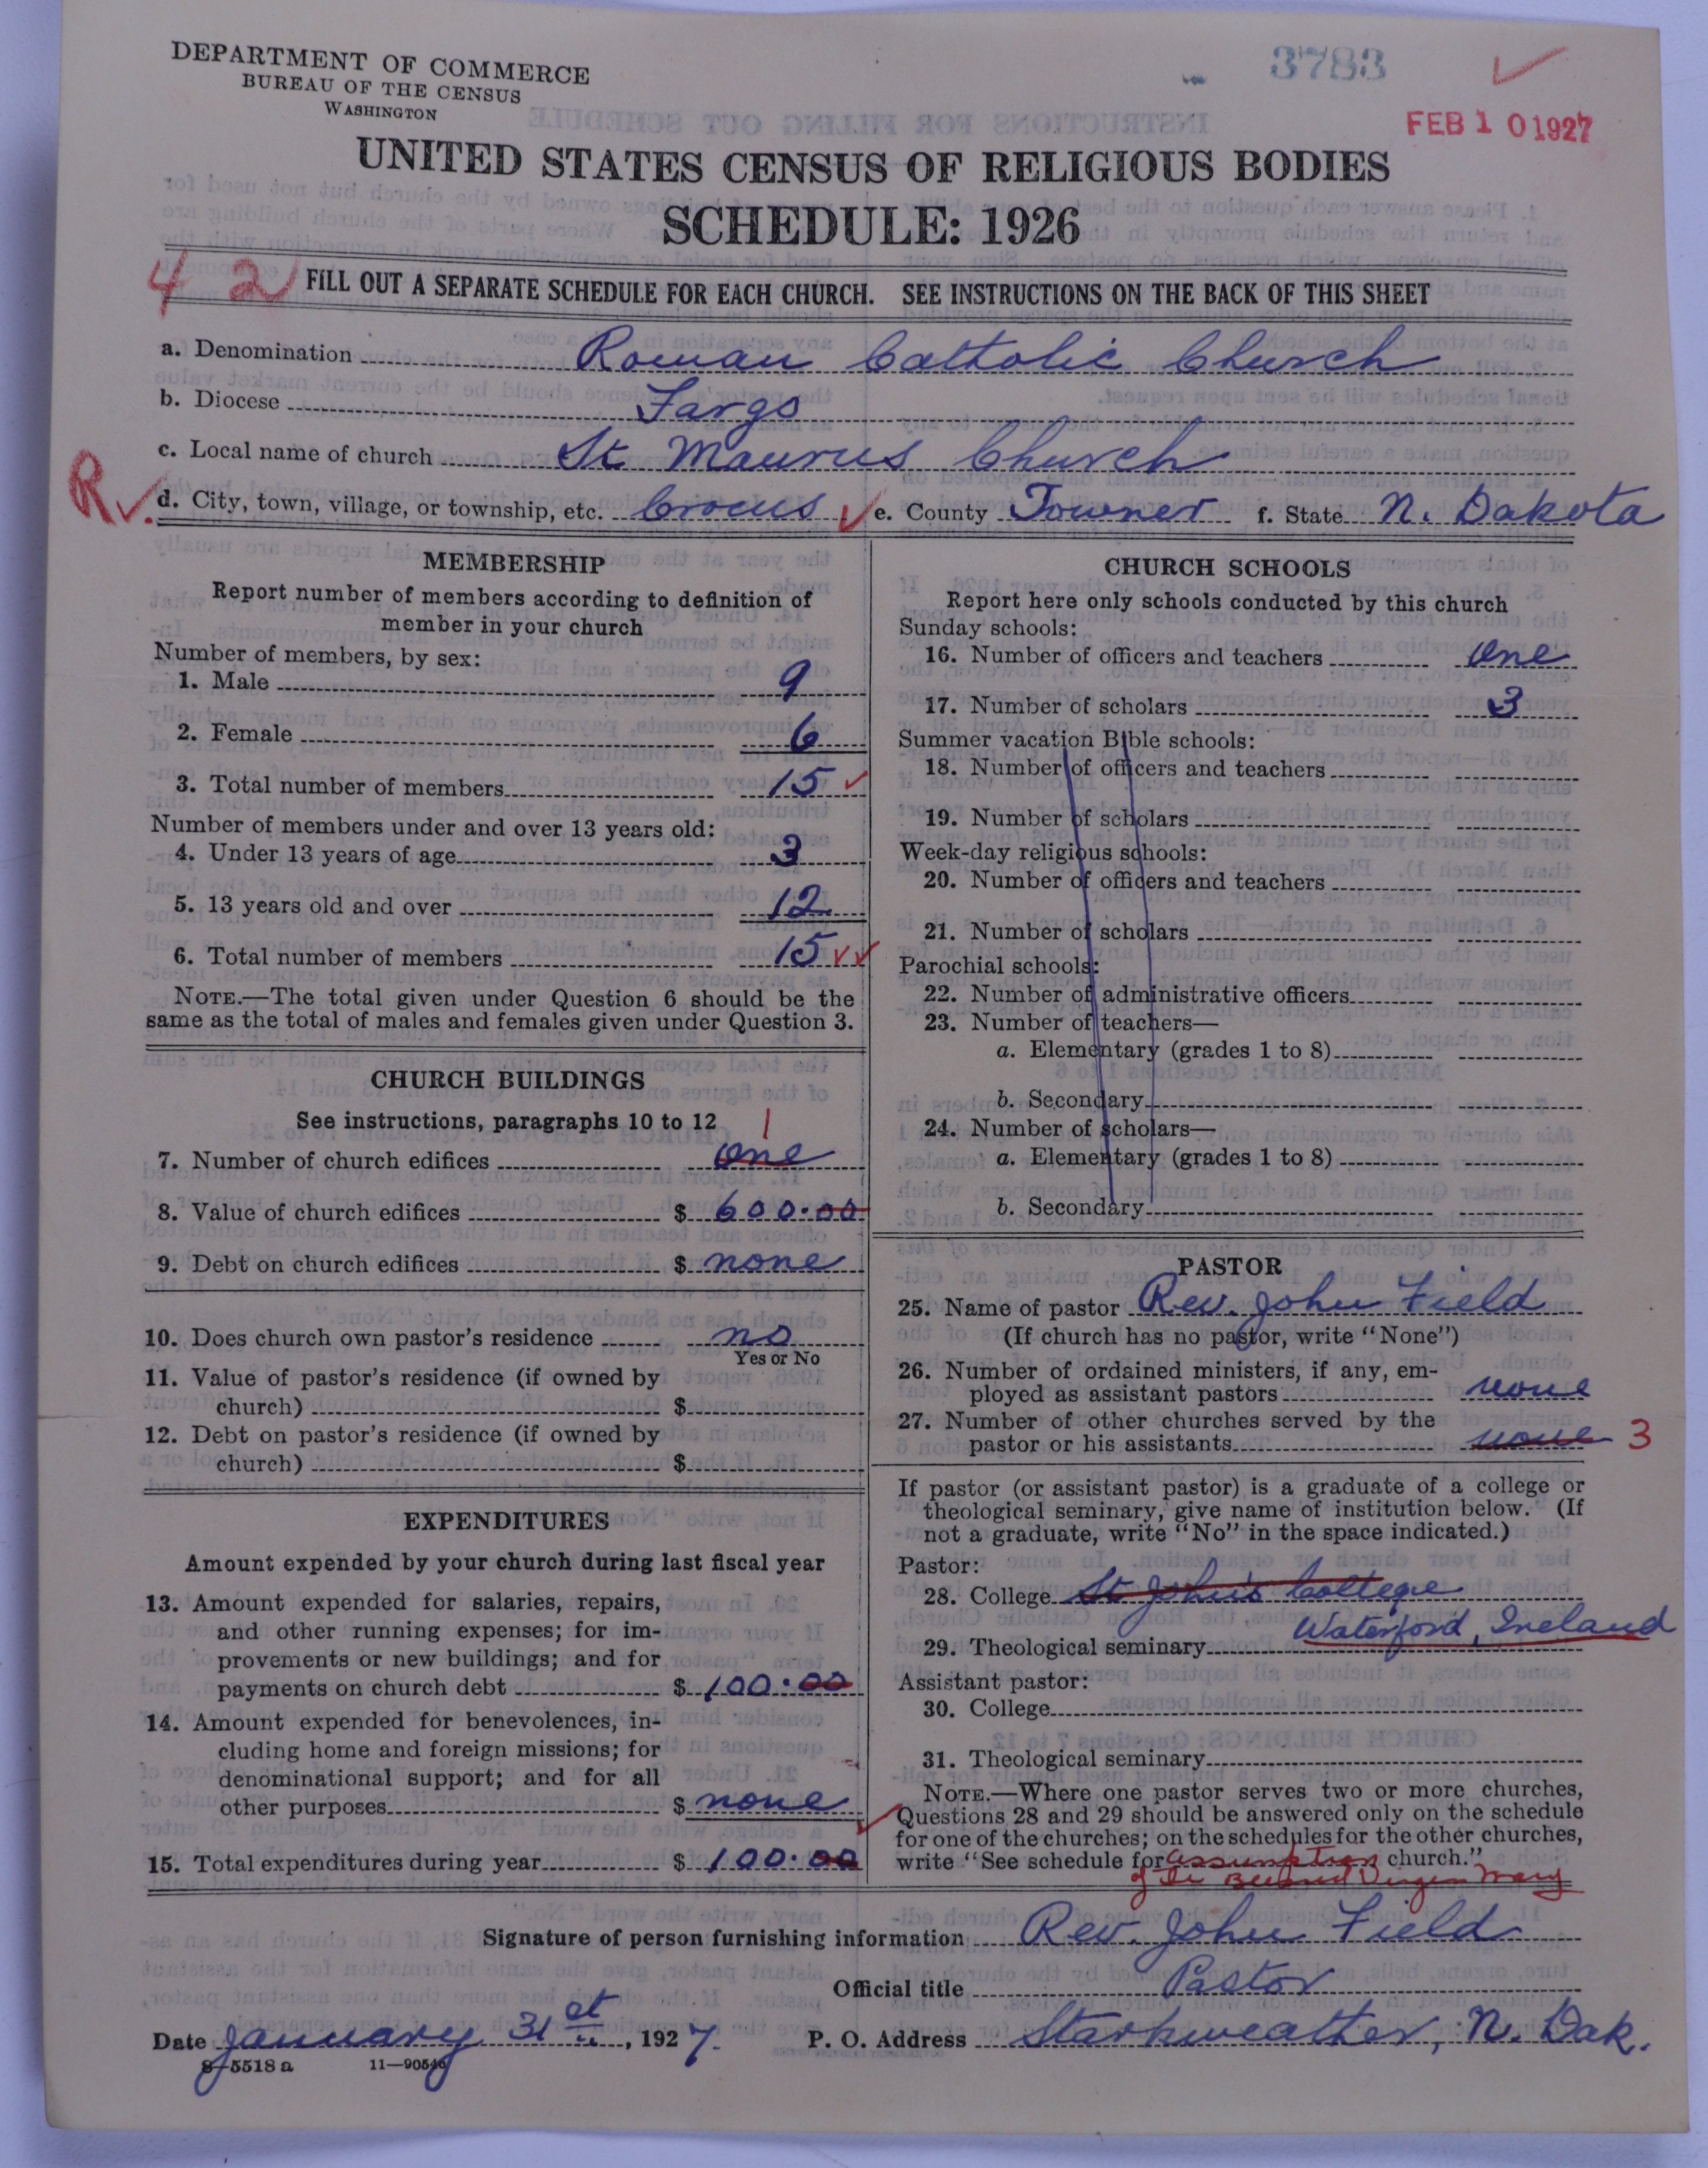 DEPARTMENT OF COMMERCE
BUREAU OF THE CENSUS
WASHINGTON
3783
FEB 10 1927
UNITED STATES CENSUS OF RELIGIOUS BODIES
SCHEDULE: 1926
42
FILL OUT A SEPARATE SCHEDULE FOR EACH CHURCH. SEE INSTRUCTIONS ON THE BACK OF THIS SHEET
a. Denomination Roman Catholic Church
b. Diocese Fargo
c. Local name of church St Maurus Church
R d. City, town, village, or township, etc. Crocus e. County Towner f. State N. Dakota
MEMBERSHIP
Report number of members according to definition of
member in your church
Number of members, by sex:
1. Male 9
2. Female 6
3. Total number of members 15
Number of members under and over 13 years old:
4. Under 13 years of age 3
5. 13 years old and over 12
6. Total number of members 15
NOTE.—The total given under Question 6 should be the
same as the total of males and females given under Question 3.
CHURCH BUILDINGS
See instructions, paragraphs 10 to 12
1
7. Number of church edifices one
8. Value of church edifices $ 600.00
9. Debt on church edifices $ none
10. Does church own pastor's residence no
Yes or No
11. Value of pastor's residence (if owned by
church) $
12. Debt on pastor's residence (if owned by
church) $
EXPENDITURES
Amount expended by your church during last fiscal year
13. Amount expended for salaries, repairs,
and other running expenses; for im-
provements or new buildings; and for
payments on church debt $ 100.00
14. Amount expended for benevolences, in-
cluding home and foreign missions; for
denominational support; and for all
other purposes $ none
15. Total expenditures during year $ 100.00
CHURCH SCHOOLS
Report here only schools conducted by this church
Sunday schools:
16. Number of officers and teachers one
17. Number of scholars 3
Summer vacation Bible schools:
18. Number of officers and teachers
19. Number of scholars
Week-day religious schools:
20. Number of officers and teachers
21. Number of scholars
Parochial schools:
22. Number of administrative officers
23. Number of teachers—
a. Elementary (grades 1 to 8)
b. Secondary
24. Number of scholars—
a. Elementary (grades 1 to 8)
b. Secondary
PASTOR
25. Name of pastor Rev. John Field
(If church has no pastor, write "None")
26. Number of ordained ministers, if any, em-
ployed as assistant pastors none
27. Number of other churches served by the
pastor or his assistants none 3
If pastor (or assistant pastor) is a graduate of a college or
theological seminary, give name of institution below. (If
not a graduate, write "No" in the space indicated.)
Pastor:
28. College St John's College
Waterford, Ireland
29. Theological seminary
Assistant pastor:
30. College
31. Theological seminary
NOTE.—Where one pastor serves two or more churches,
Questions 28 and 29 should be answered only on the schedule
for one of the churches; on the schedules for the other churches,
write "See schedule for Assumption church."
of the Blessed Virgin Mary
Signature of person furnishing information Rev. John Field
Official title Pastor
Date January 31st, 1927. P. O. Address Starkweather, N. Dak.
8—5518 a 11—90540